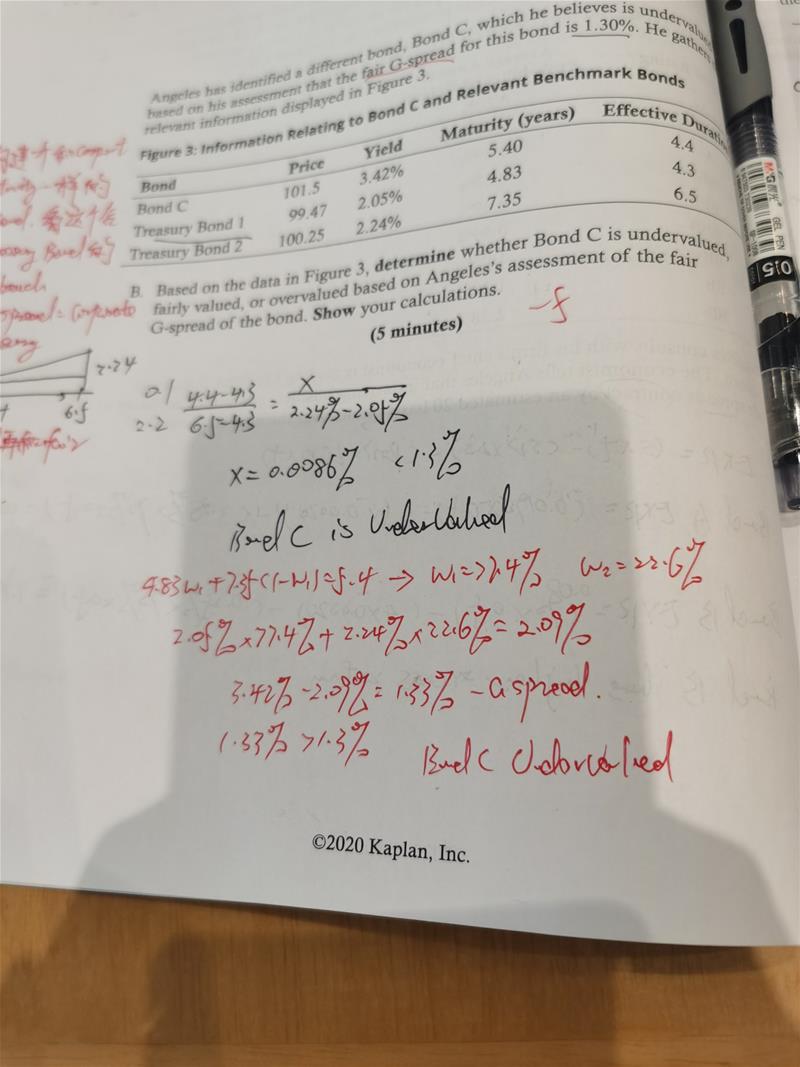 Angeles has identified a different bond, Bond C, which he believes is undervalued
based on his assessment that the fair G-spread for this bond is 1.30%. He gathers
relevant information displayed in Figure 3.
Figure 3: Information Relating to Bond C and Relevant Benchmark Bonds
Bond Price Yield Maturity (years) Effective Duration
Bond C 101.5 3.42% 5.40 4.4
Treasury Bond 1 99.47 2.05% 4.83 4.3
Treasury Bond 2 100.25 2.24% 7.35 6.5
B. Based on the data in Figure 3, determine whether Bond C is undervalued,
fairly valued, or overvalued based on Angeles's assessment of the fair
G-spread of the bond. Show your calculations.
(5 minutes)
-5
2.24
6.5
0.1
2.2
4.4-4.3 / 6.5-4.3 = X / 2.24%-2.05%
X=0.0086% <1.3%
Bond C is Undervalued
4.83w1+7.35(1-w1)=5.4 → w1=77.4% w2=22.6%
2.05%×77.4%+2.24%×22.6%=2.09%
3.42%-2.09%=1.33% - G spread.
1.33%>1.3% Bond C Undervalued
©2020 Kaplan, Inc.
M&G
GEL PEN
0.5